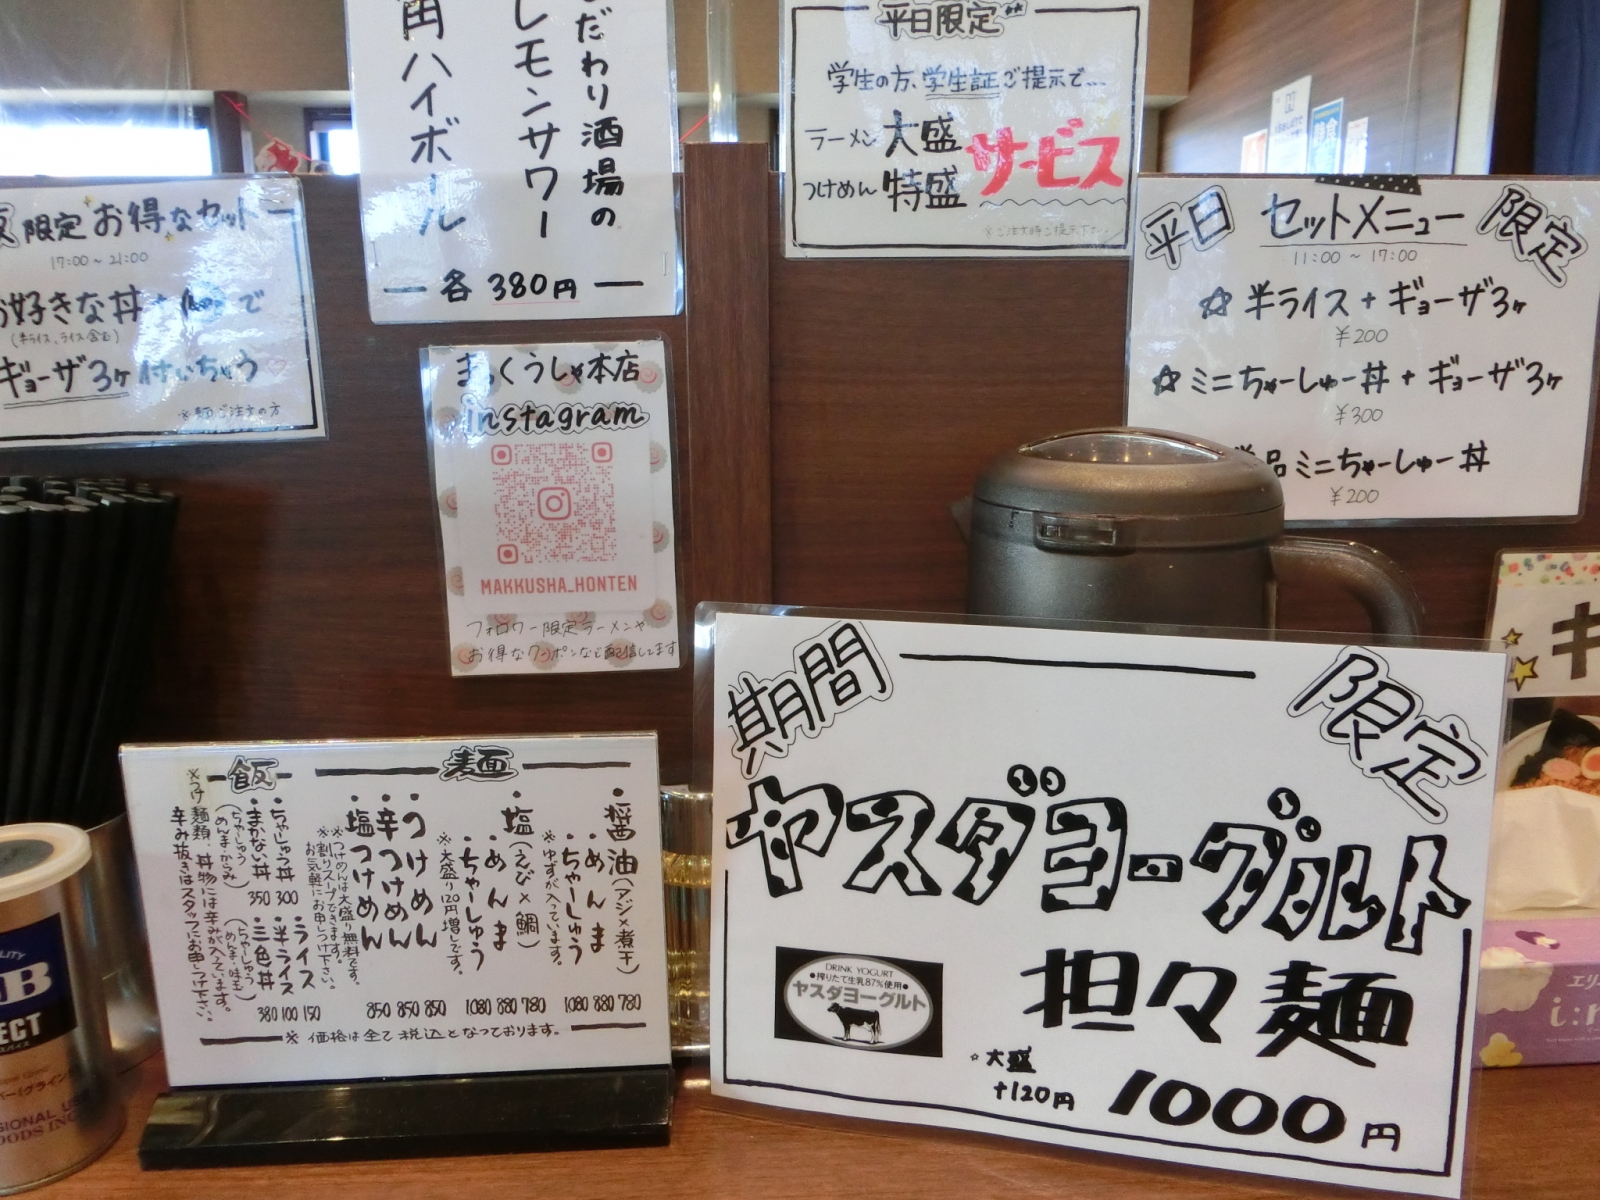 こだわり酒場の
レモンサワー
角ハイボール
各 380円
平日限定
学生の方、学生証ご提示で...
ラーメン 大盛
つけめん 特盛
サービス
※ご注文時ご提示下さい
限定 お得なセット
17:00~21:00
お好きな丼 +
で
(半ライス、ライス含む)
ギョーザ3ヶ
※麺ご注文の方
まっくうしゃ本店
instagram
MAKKUSHA_HONTEN
フォロワー限定ラーメンや
お得なクーポンなど配信してます
平日 セットメニュー 限定
11:00 ~ 17:00
☆ 半ライス + ギョーザ3ヶ
¥200
☆ ミニちゃーしゅー丼 + ギョーザ3ヶ
¥300
単品 ミニちゃーしゅー丼
¥200
麺
・醤油(アジ×煮干)
・めんま
・ちゃーしゅう
780
880
1080
※ゆずが入っています。
・塩(えび×鯛)
・めんま
・ちゃーしゅう
780
880
1080
※大盛り120円増しです。
・つけめん
・辛つけめん
・塩つけめん
850
850
850
※つけめんは大盛り無料です。
※割りスープできます。
お気軽にお申しつけ下さい。
飯
・ちゃしゅう丼 300
・まかない丼 350
(ちゃしゅう
めんまからみ)
・ライス 150
・半ライス 100
・三色丼 380
(ちゃーしゅう
めんま・味玉)
※つけ麺類、丼物には辛みが入っています。
辛み抜きはスタッフにお申しつけ下さい。
※ 価格は全て税込となっております。
期間 限定
ヤスダヨーグルト
担々麺
DRINK YOGURT
●搾りたて生乳87%使用●
ヤスダヨーグルト
☆大盛
+120円
1000円
キ
i: